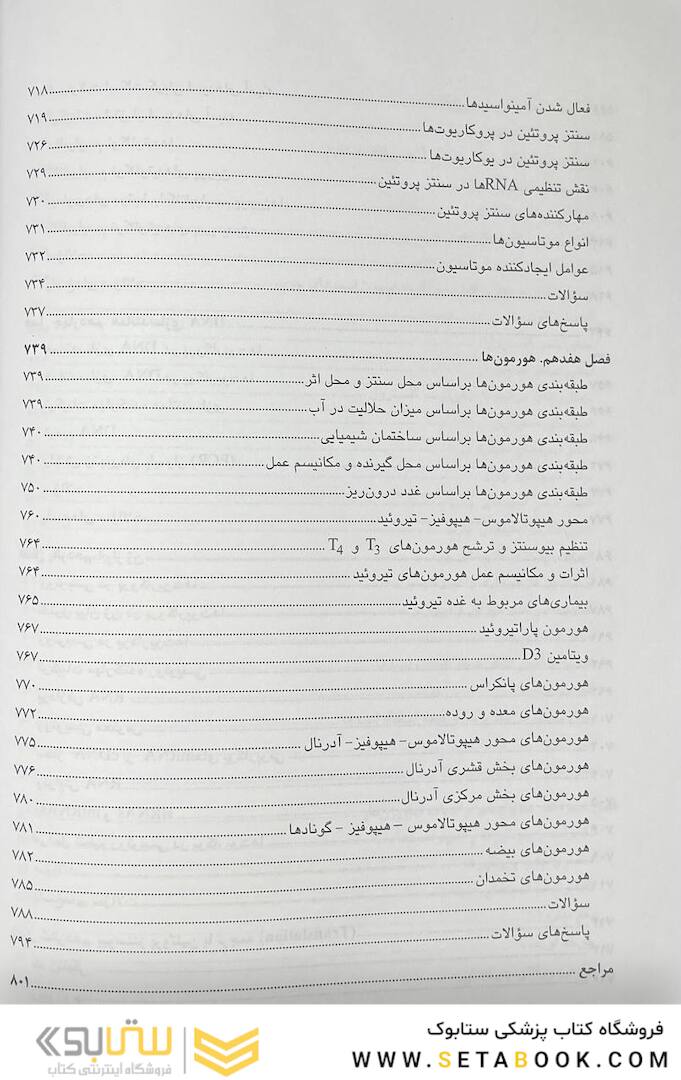 فعال شدن آمینواسیدها ۷۱۸
سنتز پروتئین در پروکاریوت‌ها ۷۱۹
سنتز پروتئین در یوکاریوت‌ها ۷۲۶
نقش تنظیمی RNAها در سنتز پروتئین ۷۲۹
مهارکننده‌های سنتز پروتئین ۷۳۰
انواع موتاسیون‌ها ۷۳۱
عوامل ایجادکننده موتاسیون ۷۳۲
سؤالات ۷۳۴
پاسخ‌های سؤالات ۷۳۷
فصل هفدهم. هورمون‌ها ۷۳۹
طبقه‌بندی هورمون‌ها براساس محل سنتز و محل اثر ۷۳۹
طبقه‌بندی هورمون‌ها براساس میزان حلالیت در آب ۷۳۹
طبقه‌بندی هورمون‌ها براساس ساختمان شیمیایی ۷۴۰
طبقه‌بندی هورمون‌ها براساس محل گیرنده و مکانیسم عمل ۷۴۰
طبقه‌بندی هورمون‌ها براساس غدد درون‌ریز ۷۵۰
محور هیپوتالاموس- هیپوفیز- تیروئید ۷۶۰
تنظیم بیوسنتز و ترشح هورمون‌های T3 و T4 ۷۶۴
اثرات و مکانیسم عمل هورمون‌های تیروئید ۷۶۴
بیماری‌های مربوط به غده تیروئید ۷۶۵
هورمون پاراتیروئید ۷۶۷
ویتامین D3 ۷۶۷
هورمون‌های پانکراس ۷۷۰
هورمون‌های معده و روده ۷۷۲
هورمون‌های محور هیپوتالاموس- هیپوفیز- آدرنال ۷۷۵
هورمون‌های بخش قشری آدرنال ۷۷۶
هورمون‌های بخش مرکزی آدرنال ۷۸۰
هورمون‌های محور هیپوتالاموس – هیپوفیز – گونادها ۷۸۱
هورمون‌های بیضه ۷۸۲
هورمون‌های تخمدان ۷۸۵
سؤالات ۷۸۸
پاسخ‌های سؤالات ۷۹۴
مراجع ۸۰۱
فروشگاه کتاب پزشکی ستابوک
WWW.SETABOOK.COM
ستابوک
فروشگاه اینترنتی کتاب